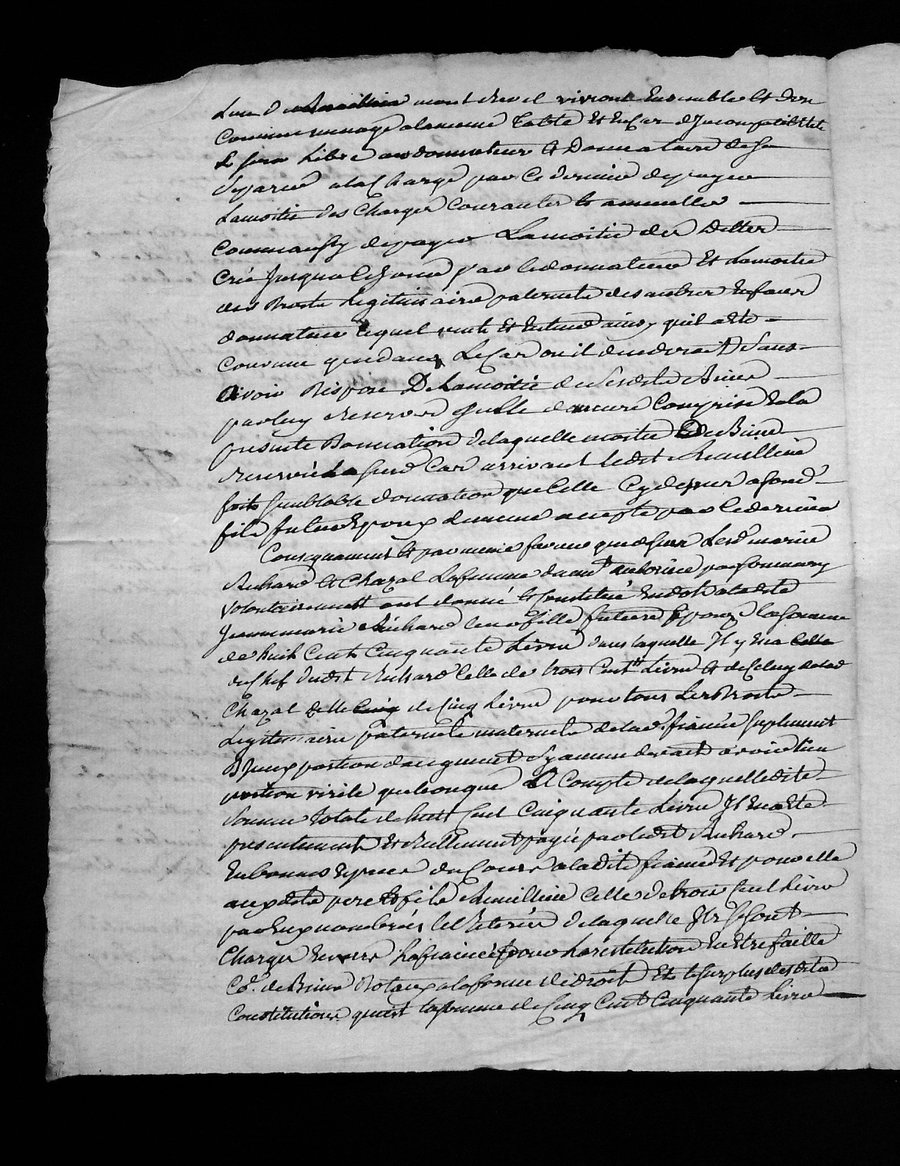 vivront Ensemble Et d'en
Commun menage a la meme Table Et En Cas d'Incompatibilité
Il sera Libre au donnateur Et Donnataire de se
Separer a la Charge par Ce dernier de payer
La moitié des Charges Courantes Et annuelles
Comme aussy de payer La moitié des Dettes
Créé Jusqua Ce Jour par le donnateur Et La moitié
des Droits Legitimaire paternels des autres Enfans
donnateur Lequel veut Et Entend ainsy qu'il a Eté
Convenu que dans Le Cas ou il viendroit a deceder Sans
avoir Disposé De La moitié de Biens
par luy reservés qu'elle demeure Comprise En la
presente Donnation de laquelle moitié De Biens
reservée Le Cas arrivant ledit Remillieux
fait semblable donnation que Celle Cy dessus a son d.
fils futur Epoux De meme accepté par Ce dernier
Consequamment Et par meme faveur que dessus Les d. mariés
Richard Et Chazal La femme dument authorisée par son mary
volontairement ont donné Et Constitué En dot a ladite
Jeanne marie Richard leur fille future Epouze la somme
de huit Cent Cinquante Livres dans laquelle Il y En a Celle
du Chef dudit Richard Celle de trois Cent Livres Et de Celuy de lad.
Chazal Celle de Cinq Livres pour tous Les droits
Legitimaire paternels maternels de la d. fiancée suplement
D'Iceux portion d'augment
portion virile quelconque A Compte de laquelle dite
somme totale de huit Cent Cinquante Livres Il En a Eté
presentement Et Reellement payé par ledit Richard
En bonnes Especes du Cours a la dite fiancée Et pour elle
auxdits pere Et fils Remillieux Celle de trois Cent Livres
par Eux nombrée Et Retirée de laquelle Ils se sont
Chargés Envers La fiancée pour La restitution En Etre faitte
Cas de Biens Dotaux a la forme de droit Et le surplus desdites
Constitutions qui est la somme de Cinq Cent Cinquante Livres